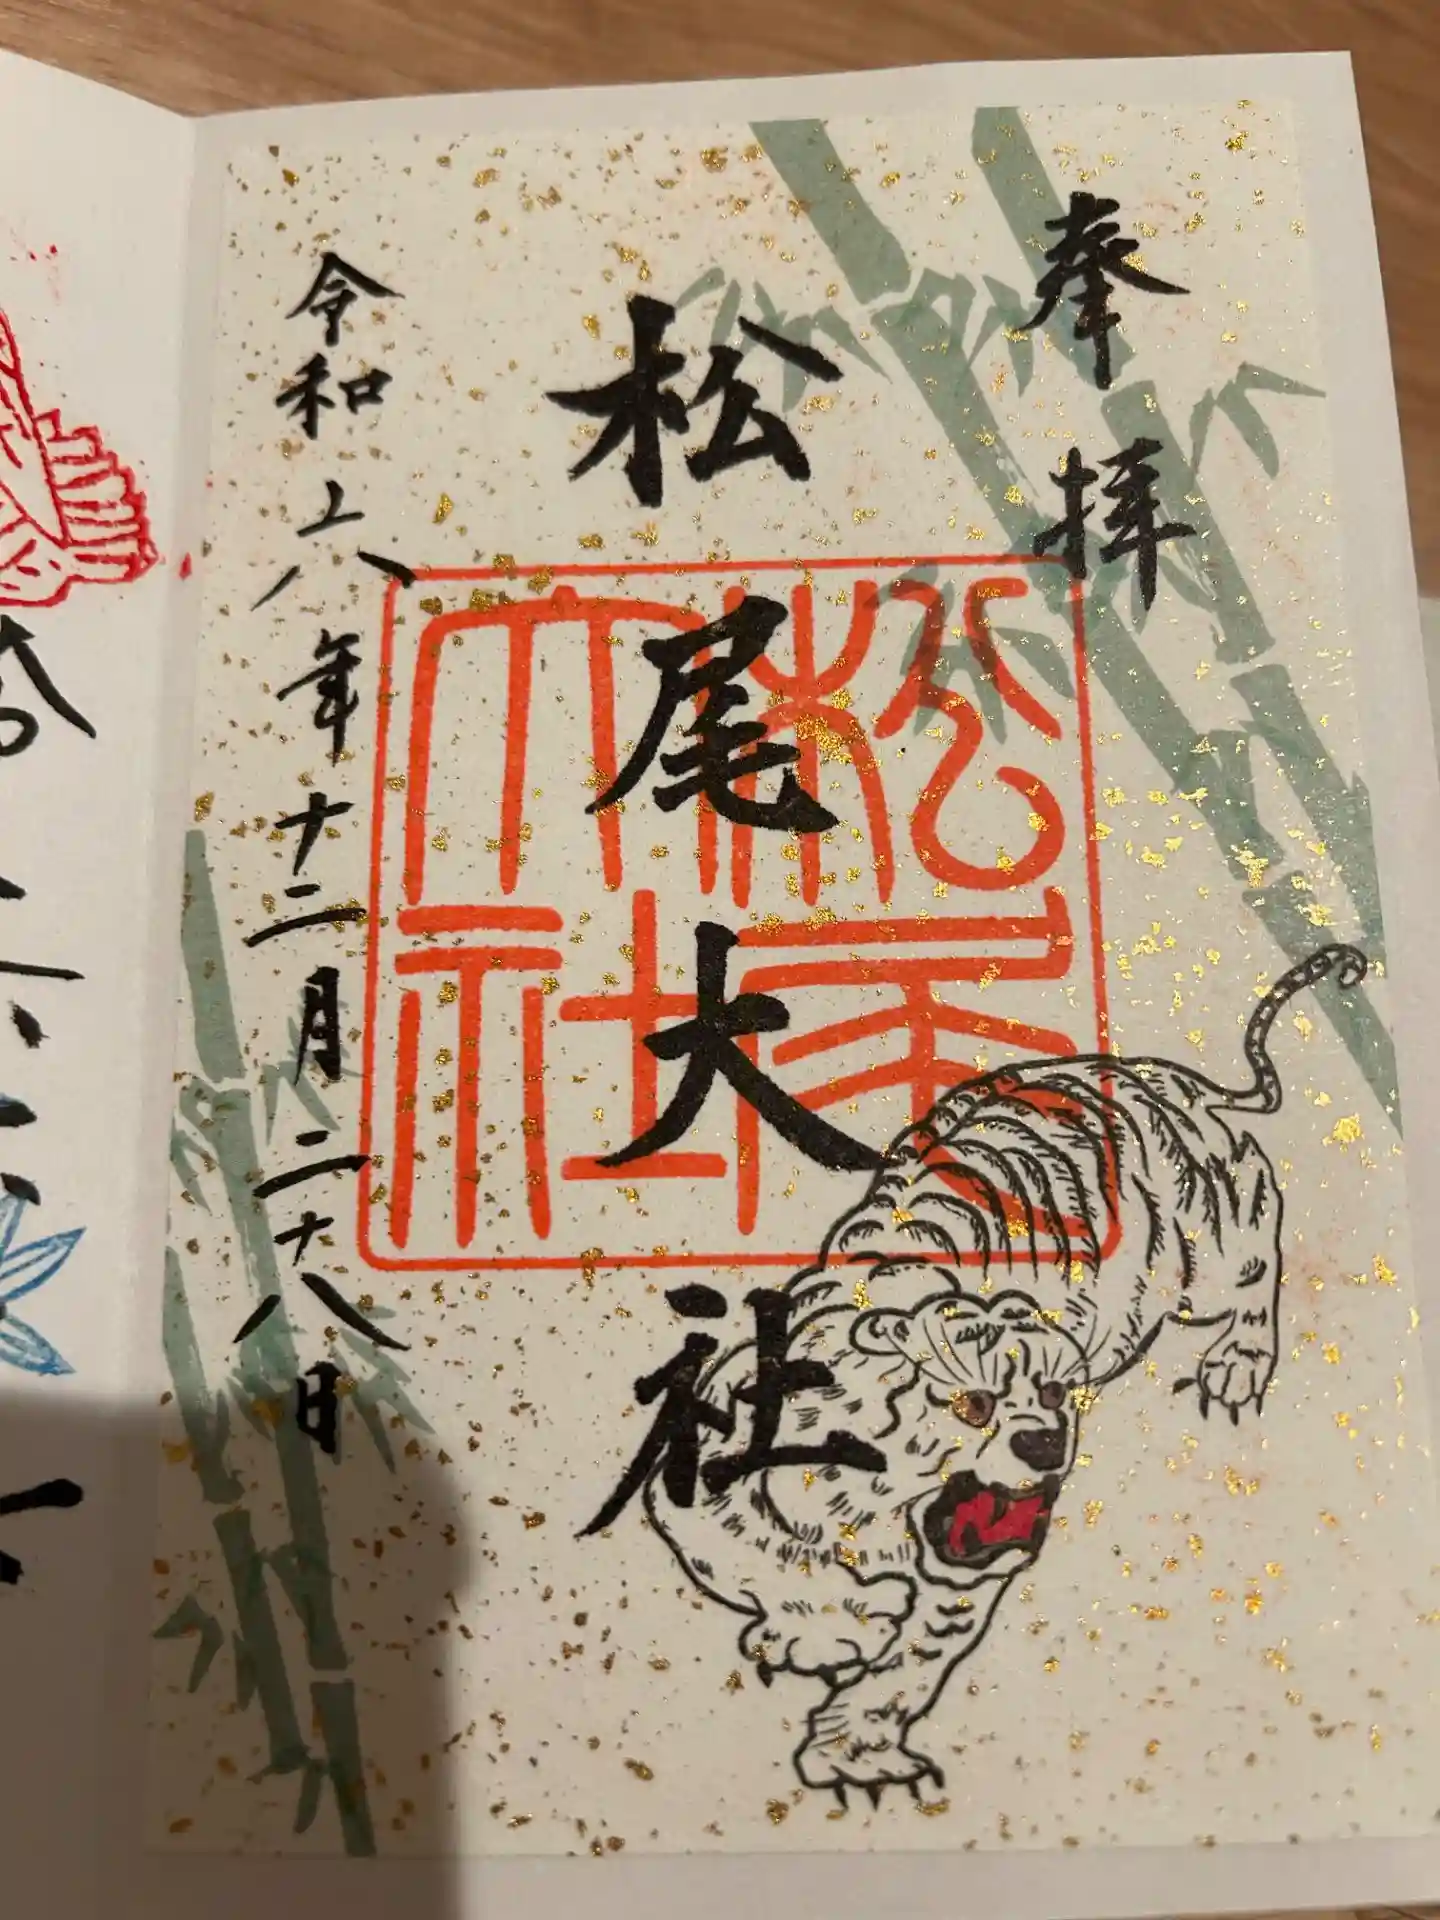 奉拝
松尾大社
松尾
大社
令和六年十二月二十八日